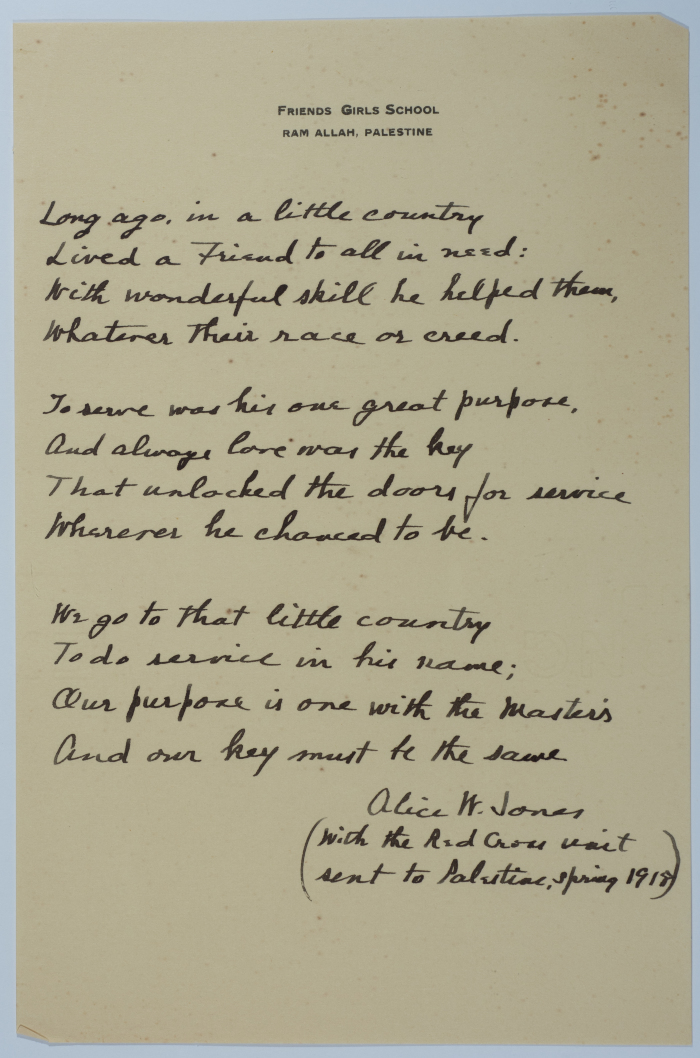 FRIENDS GIRLS SCHOOL
RAM ALLAH, PALESTINE
Long ago, in a little country
Lived a Friend to all in need:
With wonderful skill he helped them,
Whatever their race or creed.
To serve was his one great purpose,
And always love was the key
That unlocked the doors for service
Wherever he chanced to be.
We go to that little country
To do service in his name;
Our purpose is one with the Master's
And our key must be the same
Alice W. Jones
(With the Red Cross unit
sent to Palestine, spring 1918)